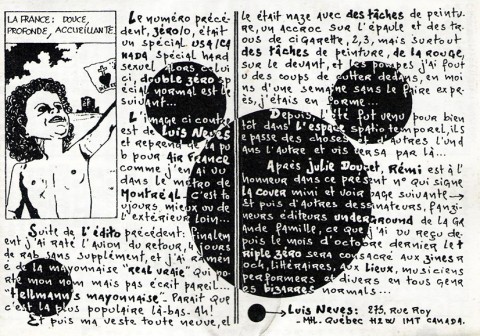 LA FRANCE: DOUCE,
PROFONDE, ACCUEILLANTE.
Le numéro précé-
dent, zéro/0, était
un spécial USA/CA
NADA spécial hard
sexuel alors celui
ci, double zéro sp
écial normal est le
suivant...
L'image ci contre
est de Luis Neves
et reprend de la pu
b pour Air France
comme j'en ai vu
dans le métro de
Montréal. C'est to
ujours mieux vu de
l'extérieur, loin...
Suite de l'édito précédent: finalem
ent j'ai raté l'avion du retour, 4 jours
de rab sans supplément, et j'ai ramén
é de la mayonnaise "real vraie" qui po
rte mon nom mais pas écrit pareil...
"Hellmann's mayonnaise". Parait que
c'est la plus populaire là-bas. Ah!
Et puis ma veste toute neuve, el
le était naze avec des tâches de peintu-
re, un accroc sur l'épaule et des tro
us de cigarette, 2, 3, mais surtout
des tâches de peinture, de la rouge,
sur le devant, et les pompes j'ai fout
u des coups de cutter dedans, en moi
ns d'une semaine sans le faire expr-
ès, j'étais en forme...
Depuis l'été fut venu pour bien
tôt dans l'espace spatio temporel, ils
e passe des choses et d'autres l'und
ans l'autre et vis versa par là...
Après Julie Doucet, Rémi est à l'
honneur dans ce présent n° qui signe
la cover mini et voir page suivante →
Et puis d'autres dessinateurs, fanzi-
neurs éditeurs underground de la Gr
ande famille, ce que j'ai vu reçu de-
puis le mois d'octobre dernier. Le t
riple zéro sera consacré aux zines r
ock, littéraires, aux lieux, musiciens
performers et divers en tous gens
bizarres normals...
→ Luis Neves: 275, Rue Roy
- MH. Quebec IMT CANADA.